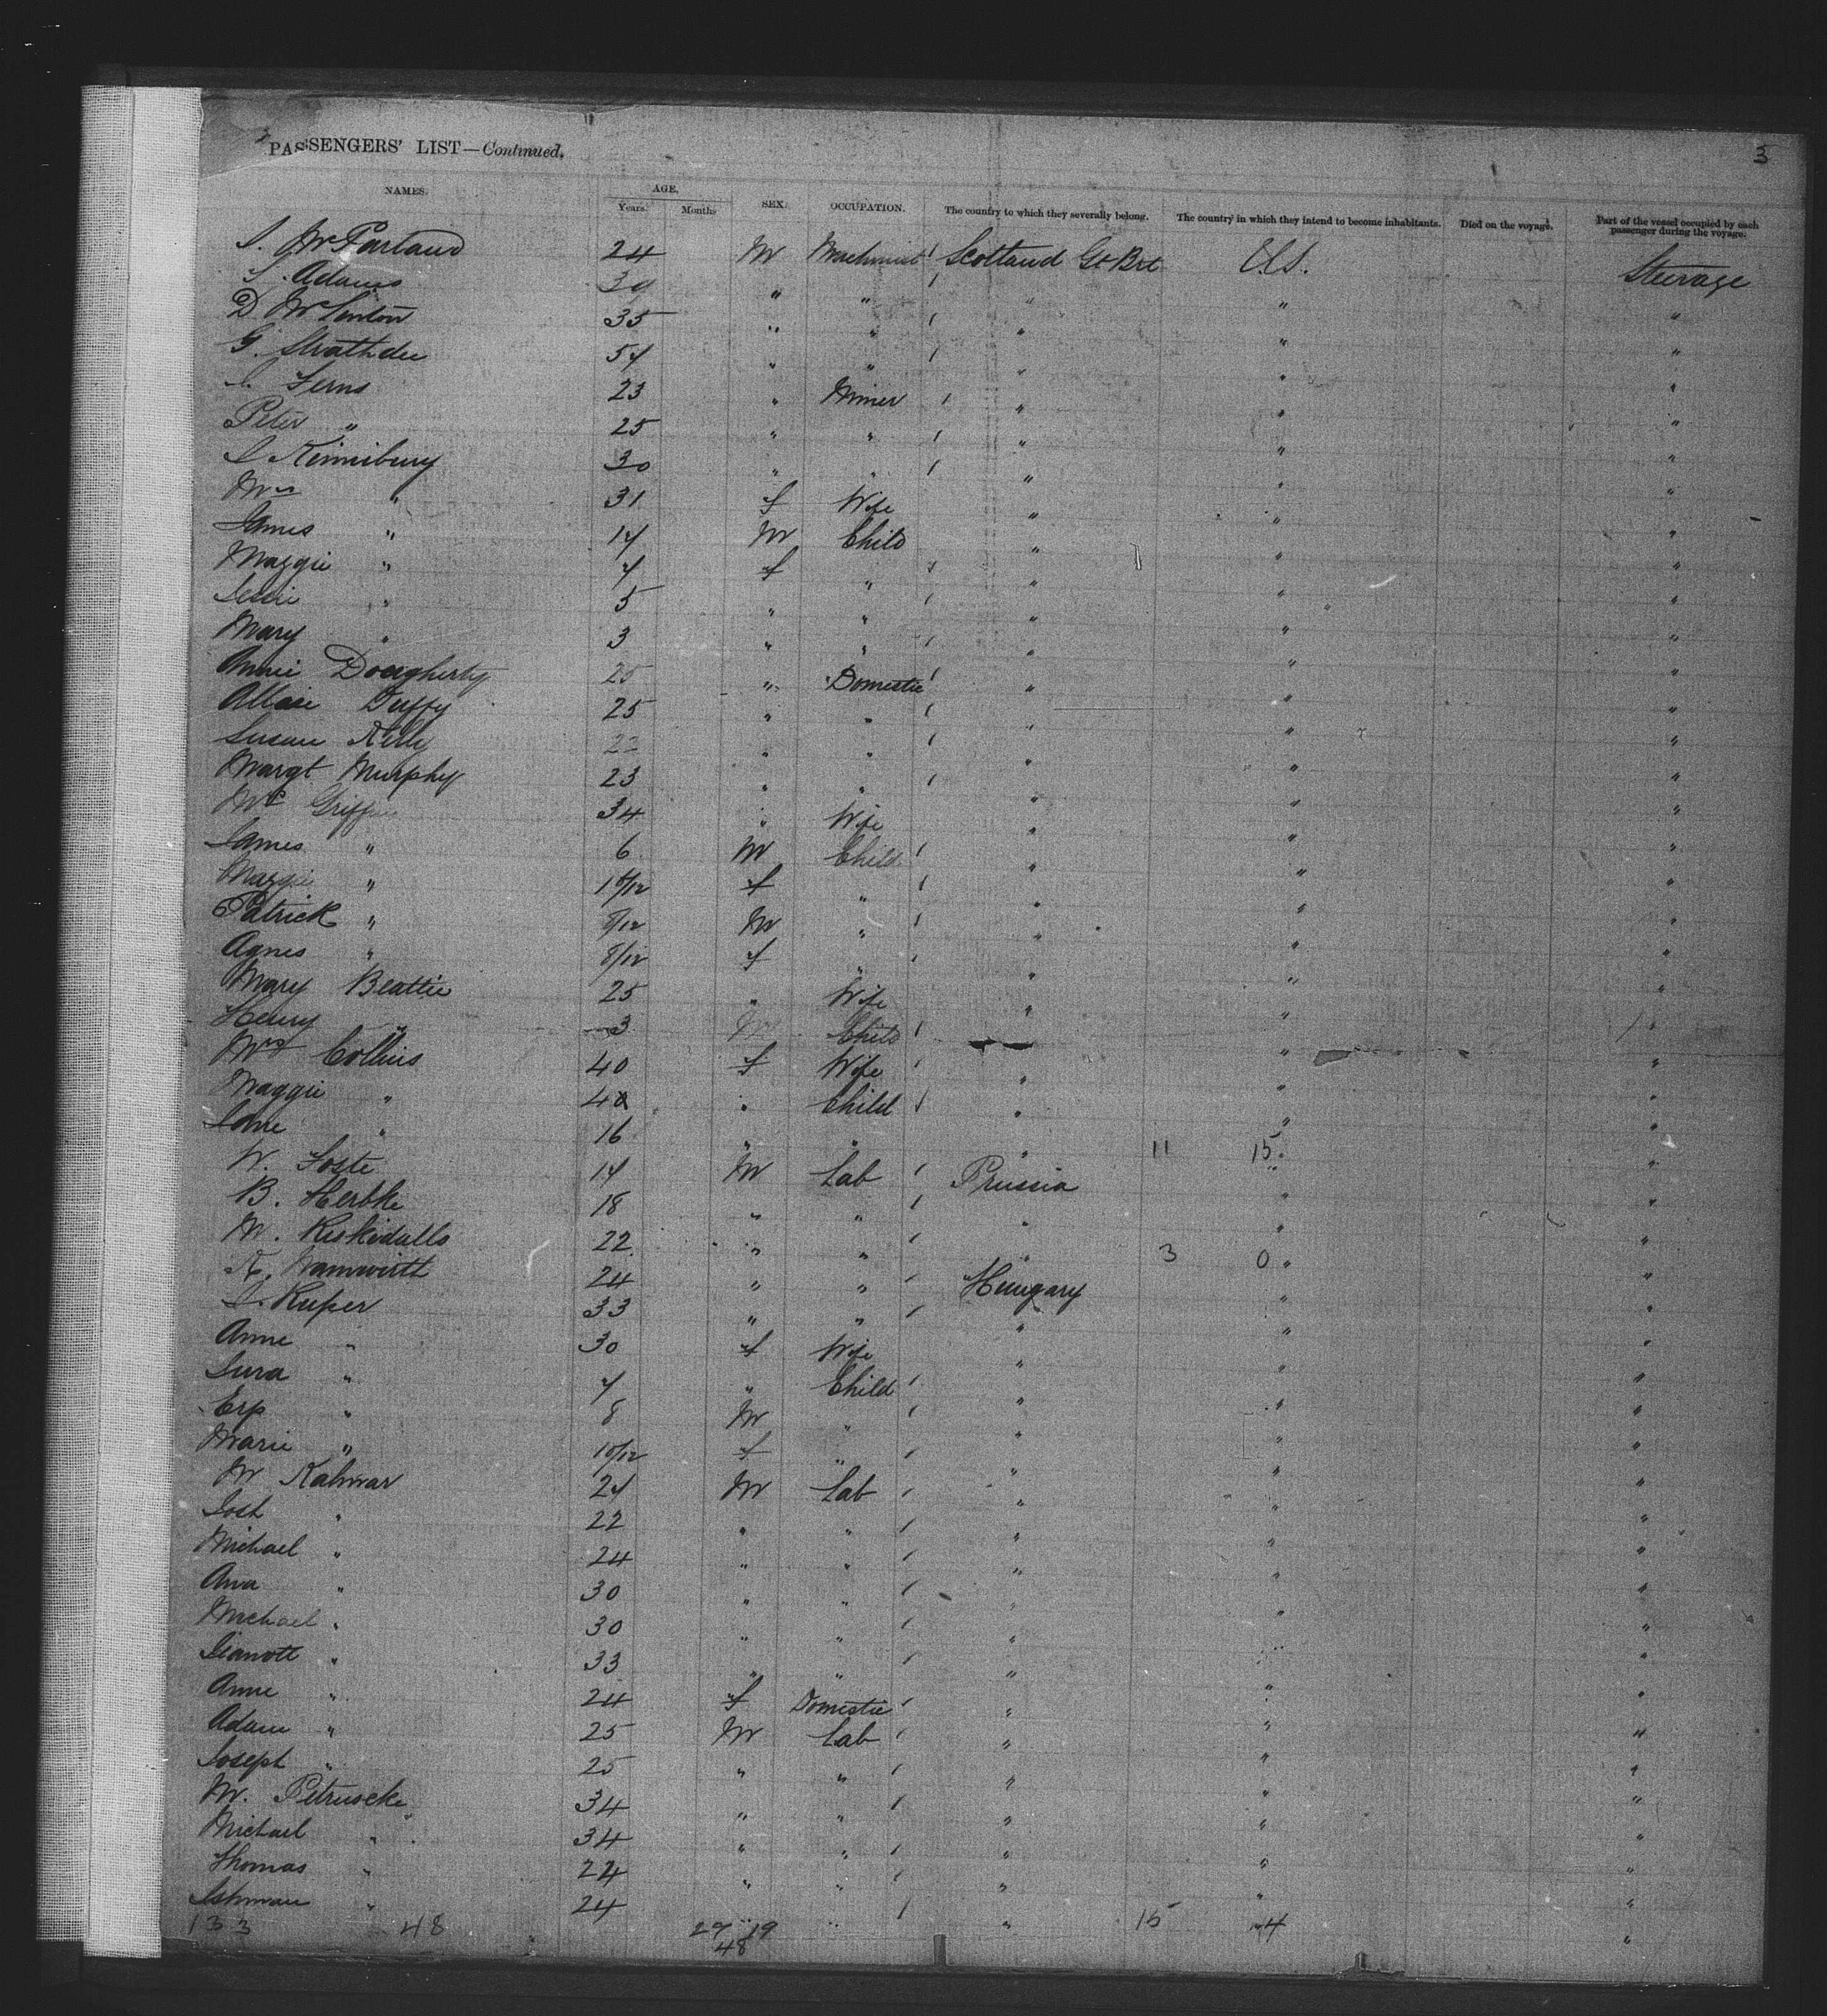 PASSENGERS' LIST—Continued. 3
NAMES. AGE. Years. Months SEX. OCCUPATION. The country to which they severally belong. The country in which they intend to become inhabitants. Died on the voyage. Part of the vessel occupied by each passenger during the voyage.
McParland 24 M Machinist Scotland Gt Brt U.S. Steerage
Adams 30 " " " " "
D. McLinton 35 " " " " "
G. Strathdee 54 " " " " "
Ferns 23 " Miner " " "
Peter " 25 " " " " "
Kinniburg 30 " " " " "
Mrs " 31 f Wife " " "
James " 14 M Child " " "
Maggie " 7 f " " " "
Jessie " 5 " " " " "
Mary " 3 " " " " "
Annie Dougherty 25 " Domestic " " "
Duffy 25 " " " " "
Susan Kelly 22 " " " " "
Margt Murphy 23 " " " " "
Griffin 34 " Wife " " "
James " 6 M Child " " "
Maggie " f " " " "
Patrick " 8/12 M " " " "
Agnes " 8/12 f " " " "
Mary Beattie 25 " Wife " " "
Henry " 3 M Child " "
Mrs Collins 40 f Wife " " "
Maggie " " Child " " "
" 16 " " " 11 15 "
W. Foste 14 M Lab Prussia " "
B. Herbke 18 " " " " "
M. 22 " " " 3 0 " "
24 " " Hungary " "
Kuper 33 " " " " "
Anne " 30 f Wife " " "
Sura " 7 " Child " " "
Erp " 8 M " " " "
Marie " 10/12 f " " " "
M Kalwar 24 M Lab " " "
Josh " 22 " " " " "
Michael " 24 " " " " "
Ana " 30 " " " " "
Michael " 30 " " " " "
" 33 " " " " "
Anne " 24 f Domestic " " "
Adam " 25 M Lab " " "
Joseph " 25 " " " " "
M. Petruscke 34 " " " " "
Michael " 34 " " " " "
Thomas " 22 " " " " "
" 24 " " " " "
133 48 29 19 15 4
48